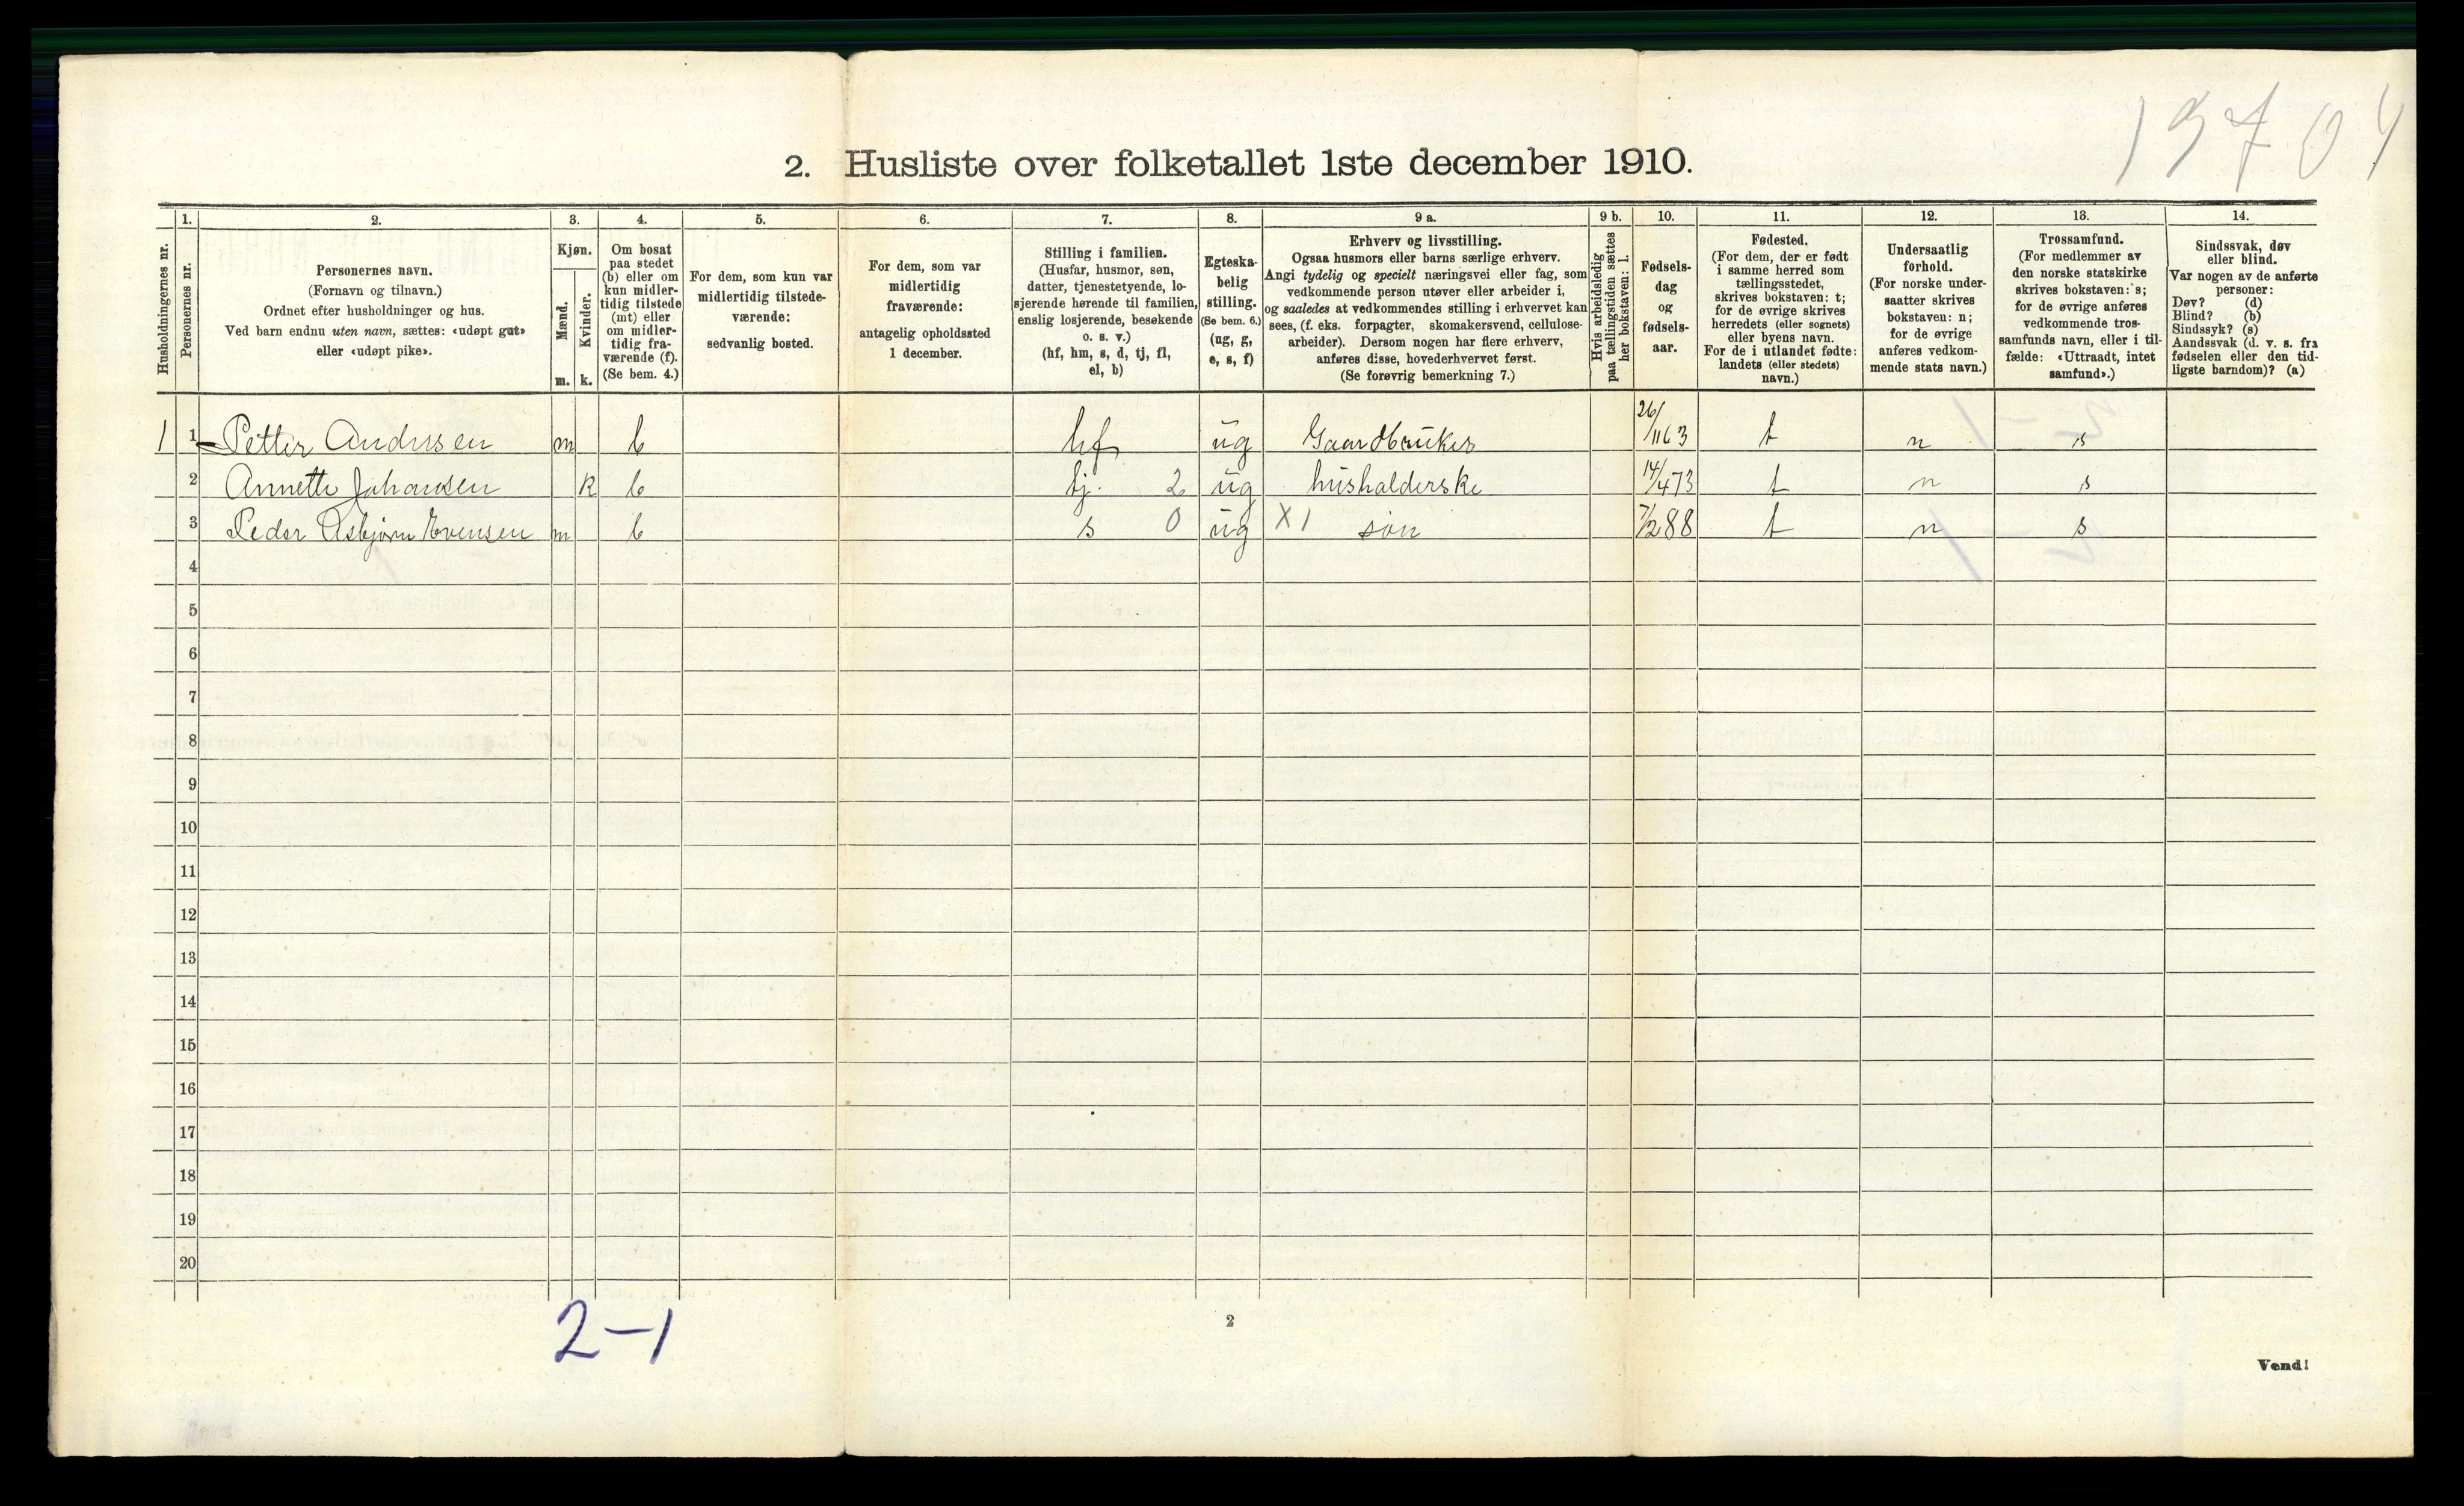 19704
2. Husliste over folketallet 1ste december 1910.
1. 2. 3. 4. 5. 6. 7. 8. 9 a. 9 b. 10. 11. 12. 13. 14.
Husholdningernes nr.
Personernes nr.
Personernes navn.
(Fornavn og tilnavn.)
Ordnet efter husholdninger og hus.
Ved barn endnu uten navn, sættes: «udøpt gut»
eller «udøpt pike».
Kjøn.
Mænd.
Kvinder.
m. k.
Om bosat
paa stedet
(b) eller om
kun midler-
tidig tilstede
(mt) eller
om midler-
tidig fra-
værende (f).
(Se bem. 4.)
For dem, som kun var
midlertidig tilstede-
værende:
sedvanlig bosted.
For dem, som var
midlertidig
fraværende:
antagelig opholdssted
1 december.
Stilling i familien.
(Husfar, husmor, søn,
datter, tjenestetyende, lo-
sjerende hørende til familien,
enslig losjerende, besøkende
o. s. v.)
(hf, hm, s, d, tj, fl,
el, b)
Egteska-
belig
stilling.
(Se bem. 6.)
(ug, g,
e, s, f)
Erhverv og livsstilling.
Ogsaa husmors eller barns særlige erhverv.
Angi tydelig og specielt næringsvei eller fag, som
vedkommende person utøver eller arbeider i,
og saaledes at vedkommendes stilling i erhvervet kan
sees, (f. eks. forpagter, skomakersvend, cellulose-
arbeider). Dersom nogen har flere erhverv,
anføres disse, hovederhvervet først.
(Se forøvrig bemerkning 7.)
Hvis arbeidsledig
paa tællingstiden sættes
her bokstaven: l.
Fødsels-
dag
og
fødsels-
aar.
Fødested.
(For dem, der er født
i samme herred som
tællingsstedet,
skrives bokstaven: t;
for de øvrige skrives
herredets (eller sognets)
eller byens navn.
For de i utlandet fødte:
landets (eller stedets)
navn.)
Undersaatlig
forhold.
(For norske under-
saatter skrives
bokstaven: n;
for de øvrige
anføres vedkom-
mende stats navn.)
Trossamfund.
(For medlemmer av
den norske statskirke
skrives bokstaven: s;
for de øvrige anføres
vedkommende tros-
samfunds navn, eller i til-
fælde: «Uttraadt, intet
samfund».)
Sindssvak, døv
eller blind.
Var nogen av de anførte
personer:
Døv? (d)
Blind? (b)
Sindssyk? (s)
Aandssvak (d. v. s. fra
fødselen eller den tid-
ligste barndom)? (a)
1 1 Petter Anderssen m b hf ug Gaardbruker 26/11 63 t n s
2 Annette Johansen k b tj. 2 ug husholderske 14/4 73 t n s
3 Peder Asbjørn Evensen m b s 0 ug X 1 søn 7/2 88 t n s
4
5
6
7
8
9
10
11
12
13
14
15
16
17
18
19
20
2-1
2
Vend!